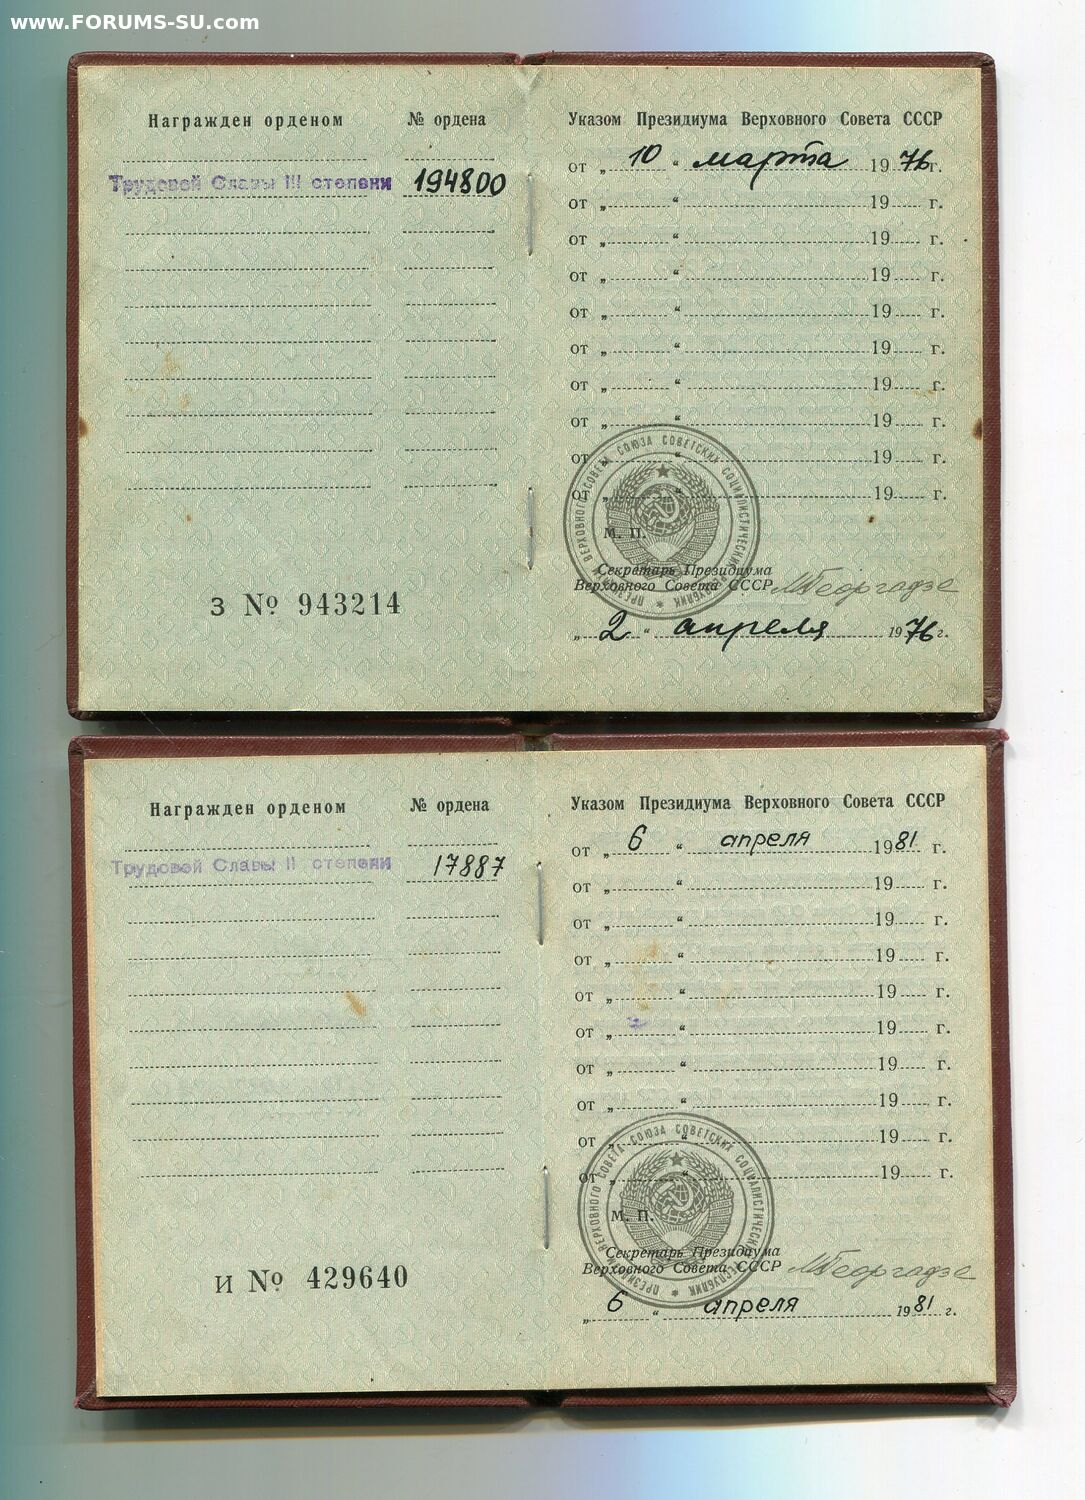 www.FORUMS-SU.com
Награжден орденом № ордена
Трудовой Славы III степени 194800
З № 943214
Указом Президиума Верховного Совета СССР
от „ 10 “ марта 1976 г.
от „ “ 19 г.
от „ “ 19 г.
от „ “ 19 г.
от „ “ 19 г.
от „ “ 19 г.
от „ “ 19 г.
от „ “ 19 г.
от „ “ 19 г.
от „ “ 19 г.
ПРЕЗИДИУМ ВЕРХОВНОГО СОВЕТА СОЮЗА СОВЕТСКИХ СОЦИАЛИСТИЧЕСКИХ РЕСПУБЛИК
М. П.
Секретарь Президиума
Верховного Совета СССР МГеоргадзе
„ 2 “ апреля 1976 г.
Награжден орденом № ордена
Трудовой Славы II степени 17887
И № 429640
Указом Президиума Верховного Совета СССР
от „ 6 “ апреля 1981 г.
от „ “ 19 г.
от „ “ 19 г.
от „ “ 19 г.
от „ “ 19 г.
от „ “ 19 г.
от „ “ 19 г.
от „ “ 19 г.
от „ “ 19 г.
от „ “ 19 г.
ПРЕЗИДИУМ ВЕРХОВНОГО СОВЕТА СОЮЗА СОВЕТСКИХ СОЦИАЛИСТИЧЕСКИХ РЕСПУБЛИК
М. П.
Секретарь Президиума
Верховного Совета СССР МГеоргадзе
„ 6 “ апреля 1981 г.